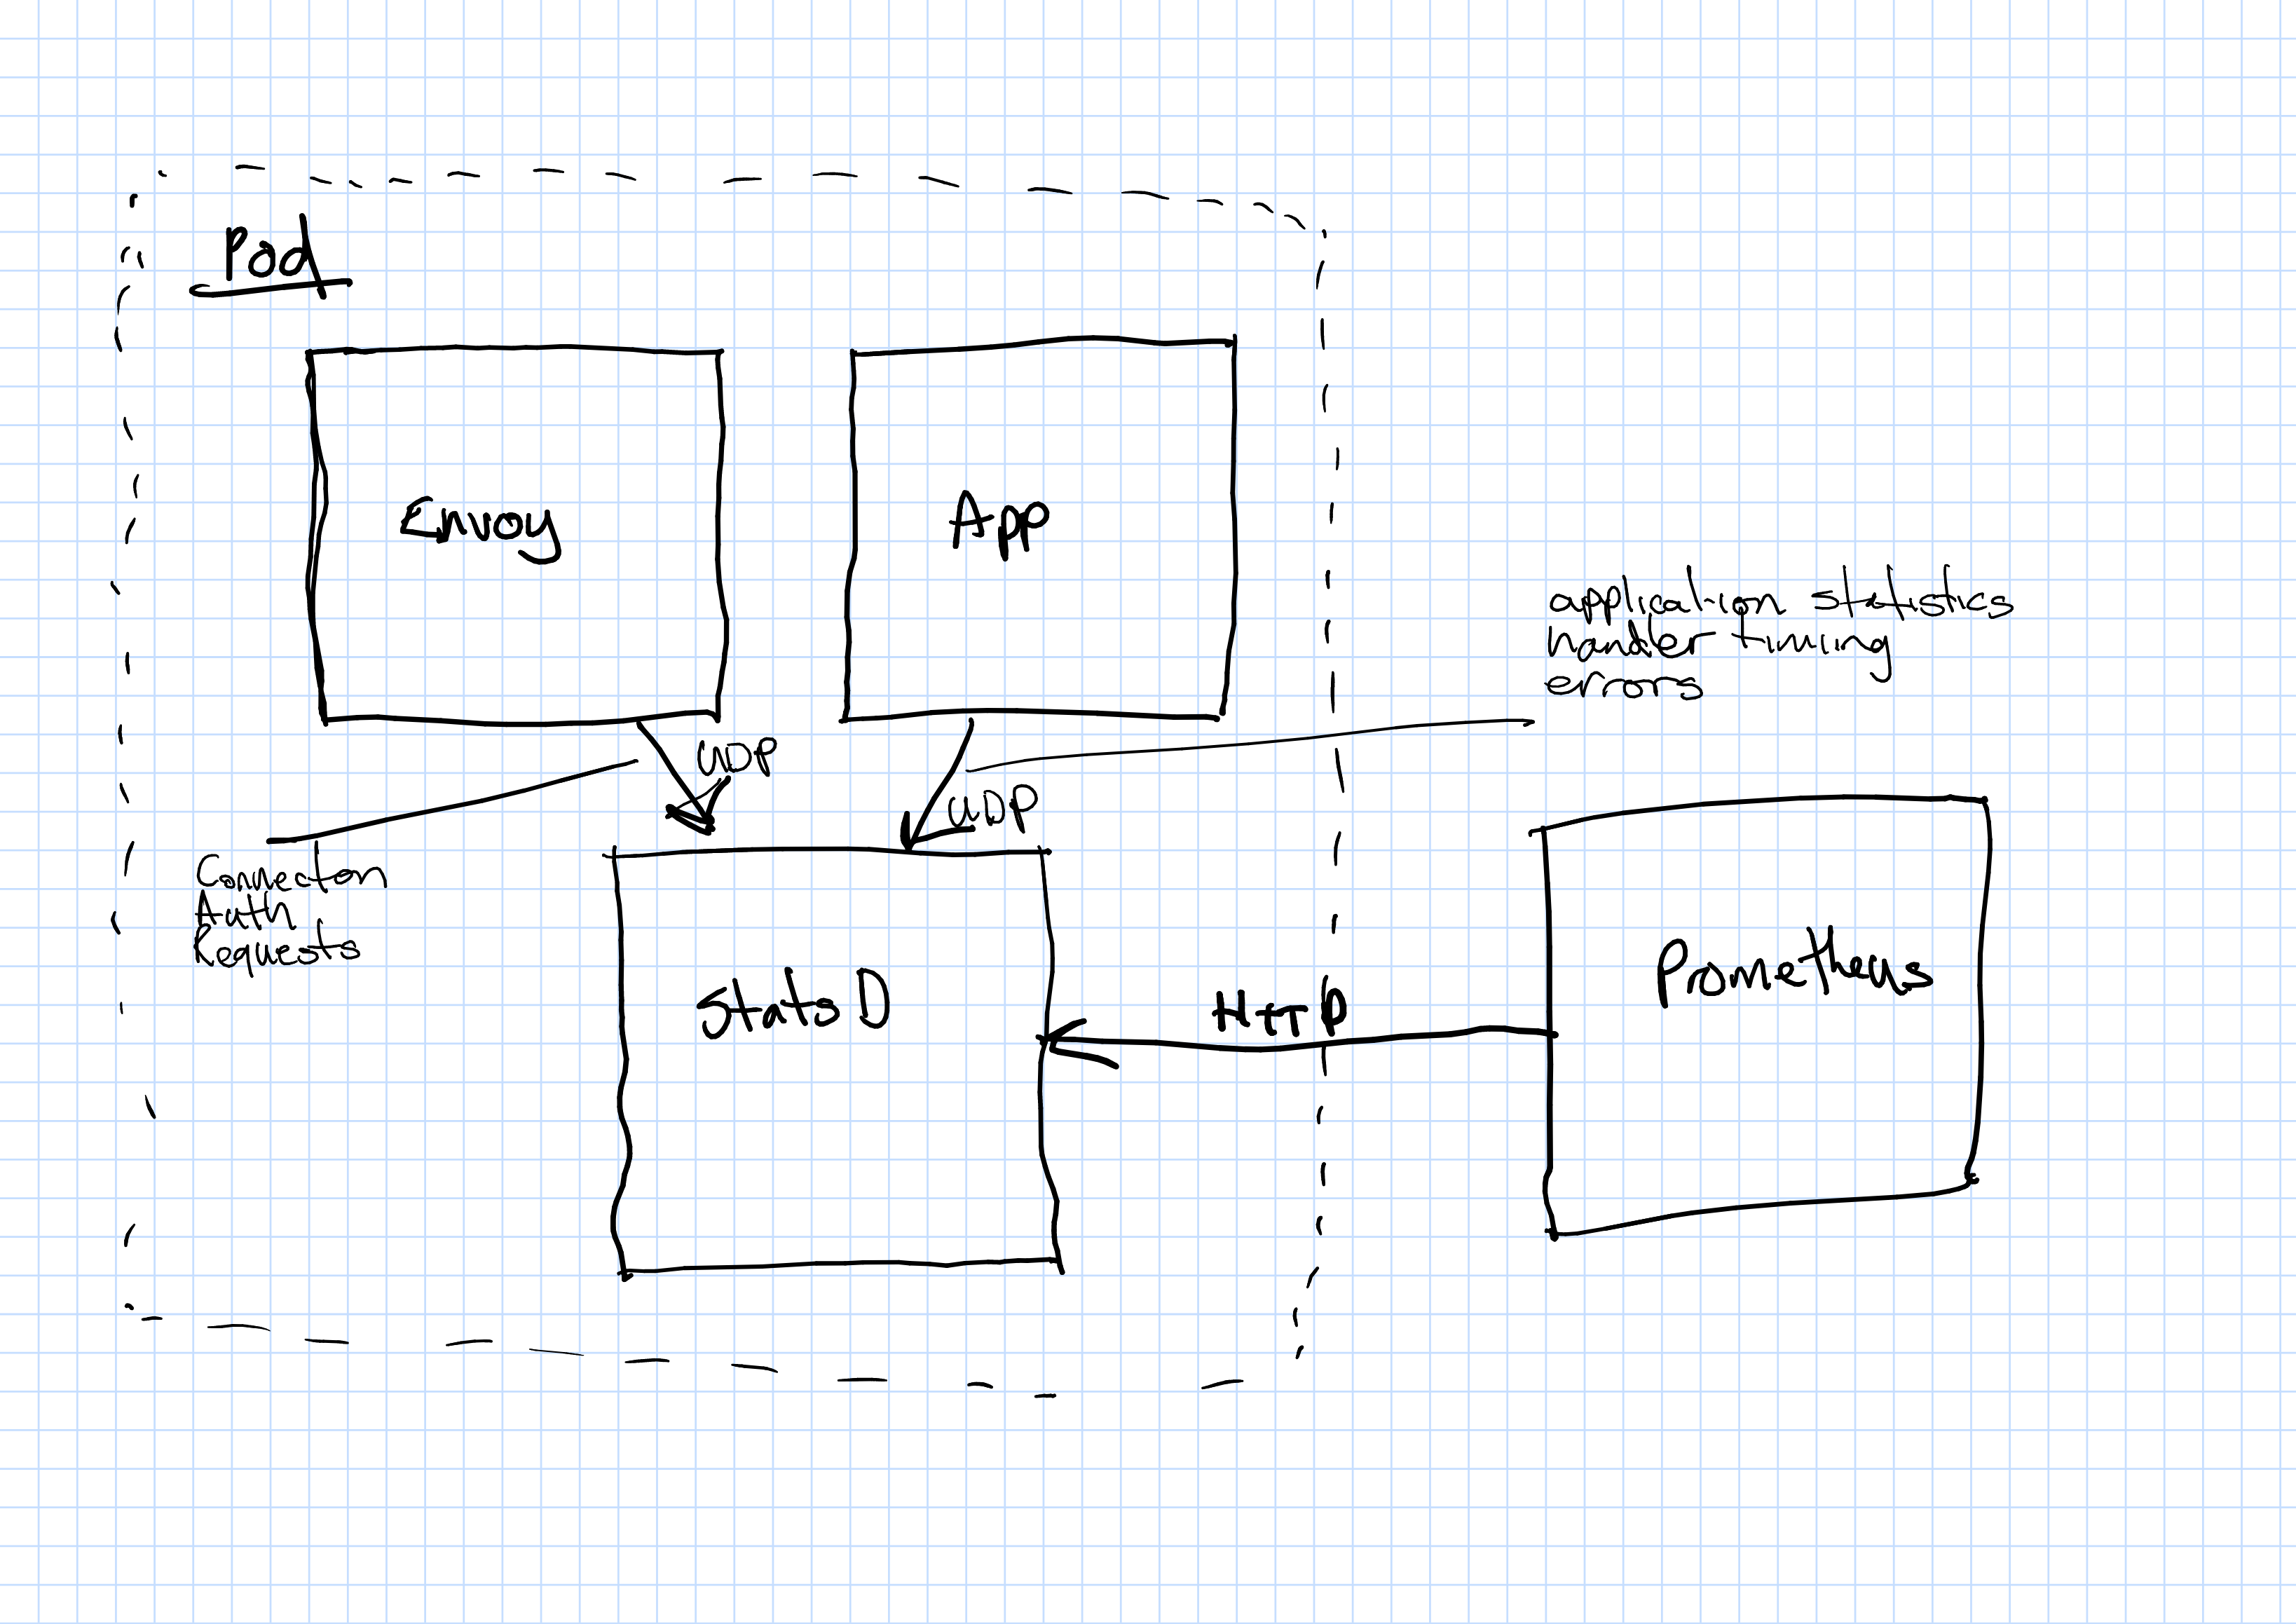 Pod
Envoy
App
application statistics
handler timing
errors
UDP
UDP
Connection
Auth
Requests
StatsD
HTTP
Pometheus